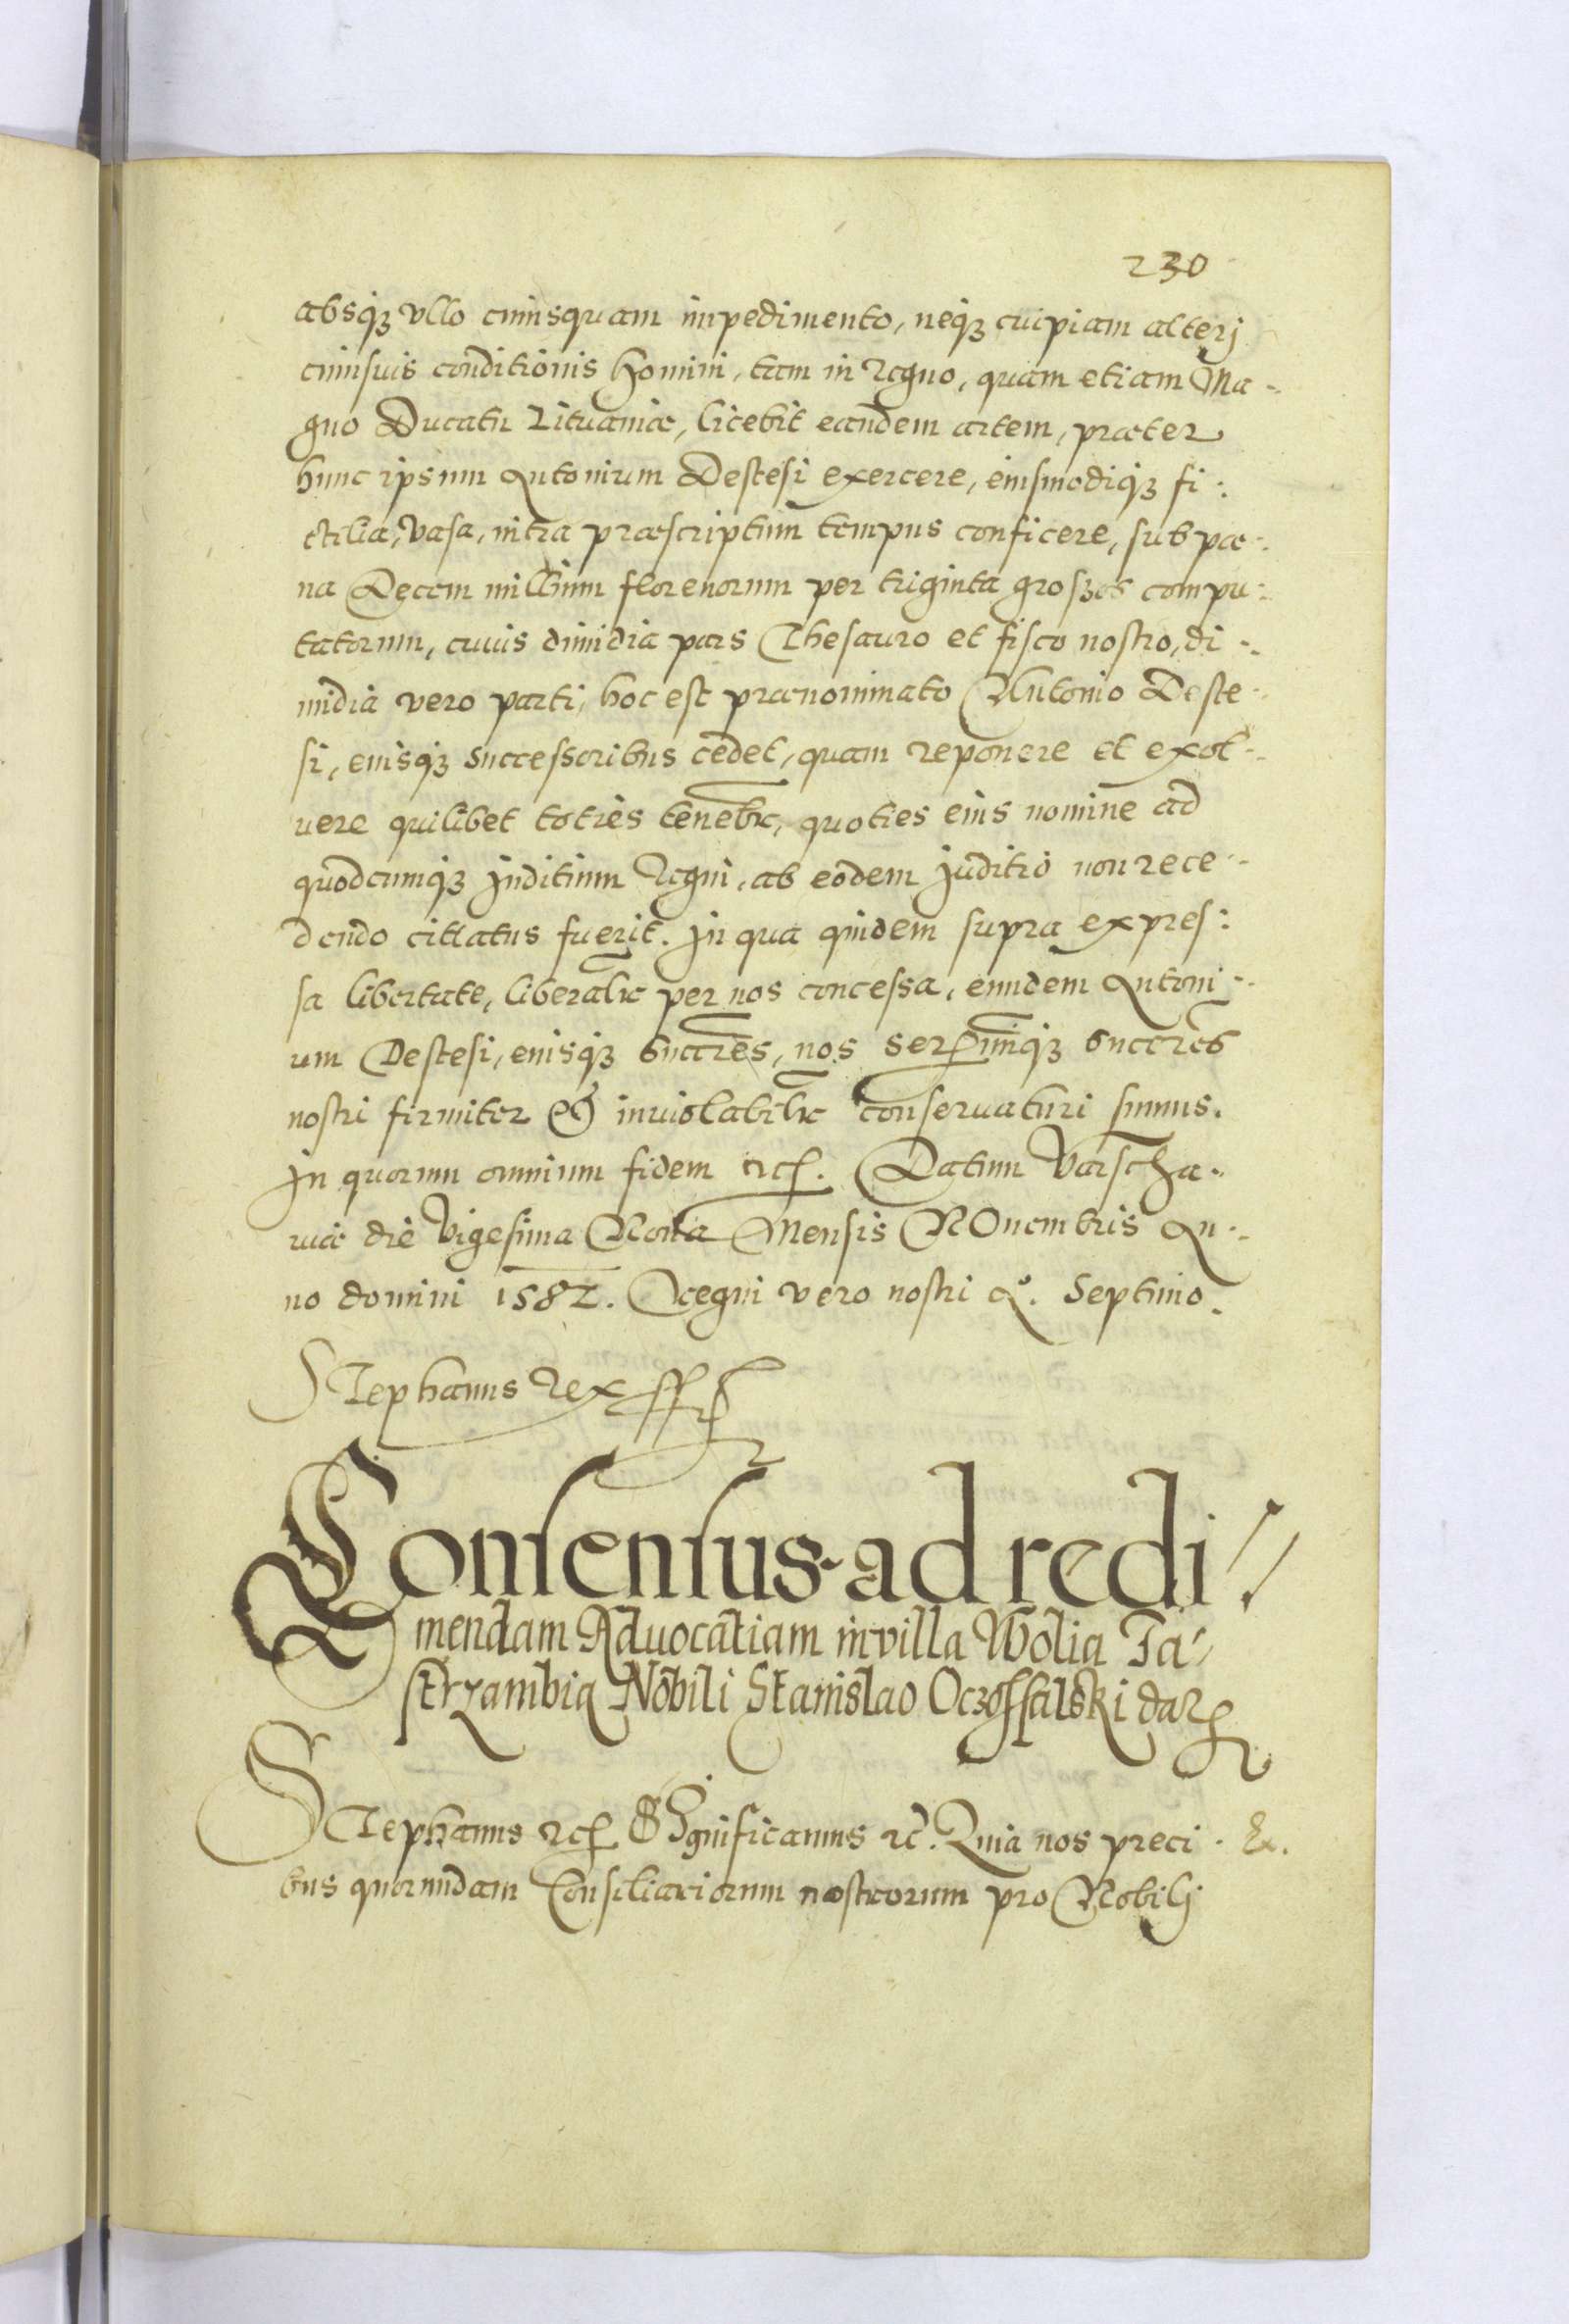 230
absq₃ vllo cuiusquam impedimento, neq₃ cuipiam alterj
cuiusuis conditionis homini, tam in regno, quam etiam Ma-
gno Ducatu Lituaniæ, licebit eandem artem, præter
hunc ipsum Antonium Destesi exercere, eiusmodiq₃ fi:
ctilia, vasa, intra præscriptum tempus conficere, sub pæ-
na Decem millium florenorum per triginta groszos compu:
tatorum, cuius dimidia pars Thesauro et fisco nostro, di-
midia vero parti, hoc est prænominato Antonio Deste-
si, eiusq₃ successoribus cedet, quam reponere et exol-
uere quilibet toties tenebr, quoties eius nomine ad
quodcumq₃ Juditium Regni, ab eodem juditio non rece-
dendo cittatus fuerit. In qua quidem supra expres:
sa libertate, liberalr per nos concessa, eundem Antoni-
um Destesi, eiusq₃ succres, nos serꝑmiq₃ succres
nostri firmiter & inuiolabilr conseruaturi sumus.
In quorum omnium fidem etc. Datum Varscha-
uiæ die Vigesima Nona Mensis NOuembris An-
no domini 1582. Regni vero nostri Aº. Septimo.
STephanus Rex ssst
Consensus ad redi
mendam Aduocatiam in villa Wolia Ja-
strzambia Nobili Stanislao Oczossalski datr
STephanus etc. SIgnificamus etc. Quia nos preci. Ex.
bus quorundam Consiliariorum nostrorum pro Nobilj